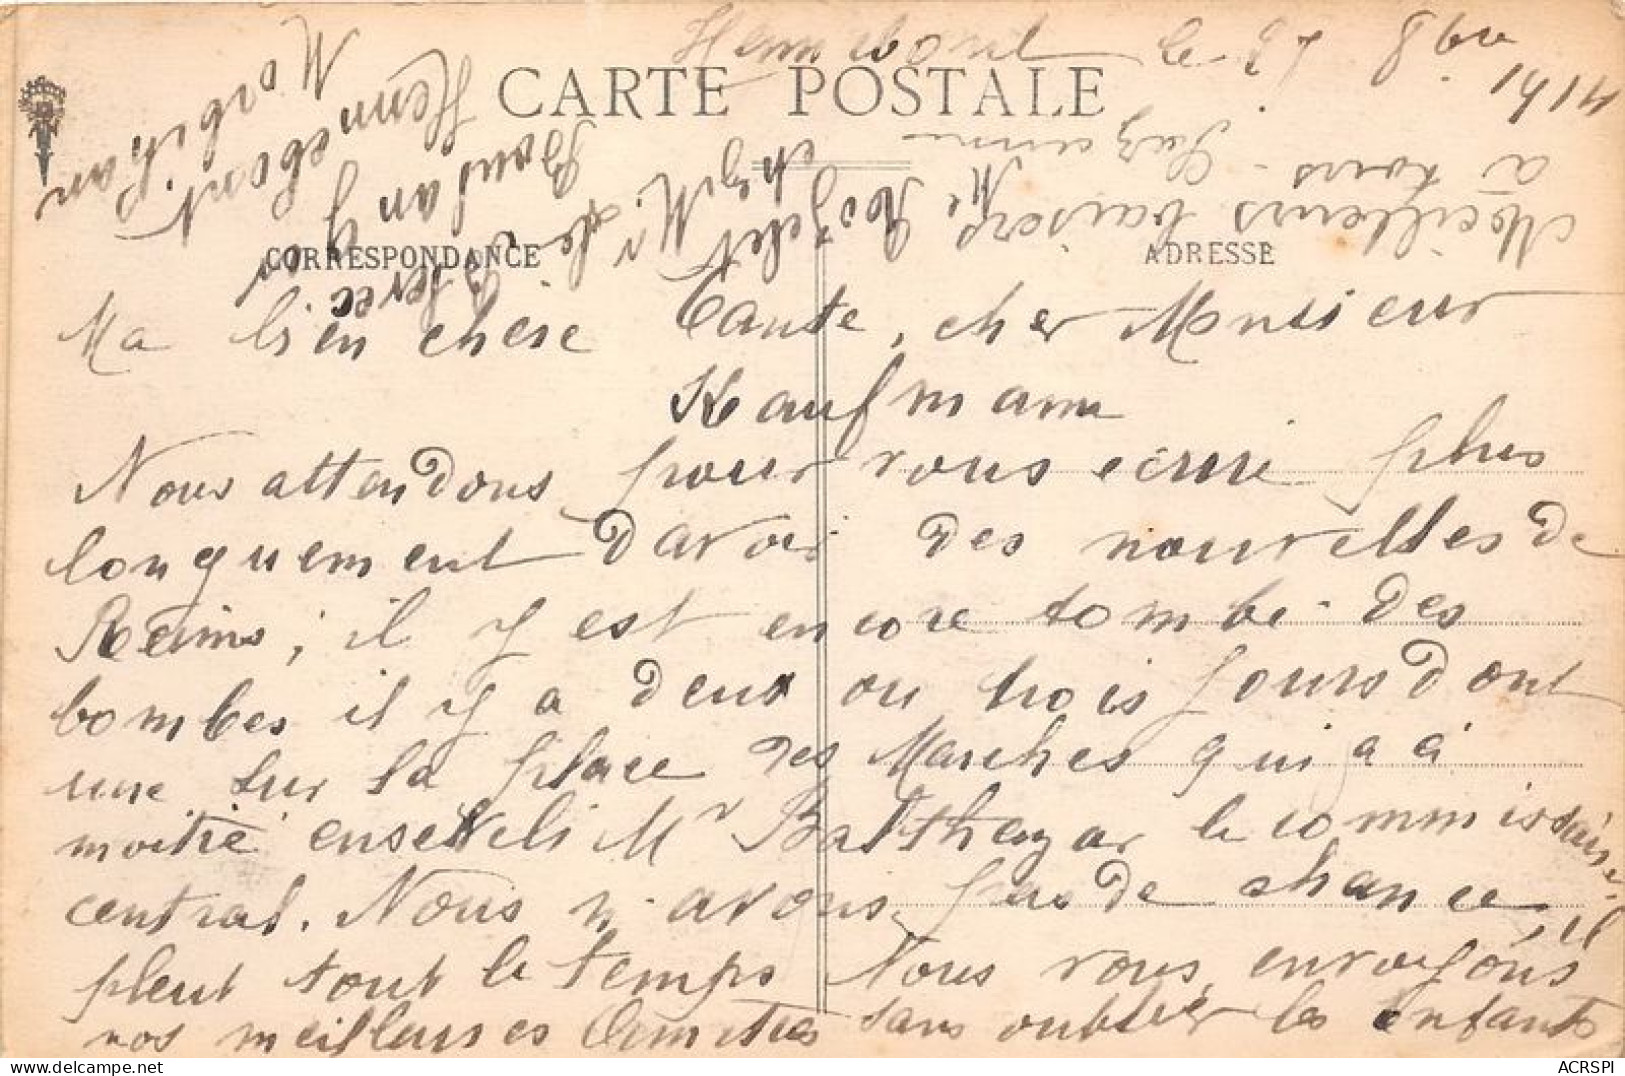 Hennebont le 27 8bre
1914
CARTE POSTALE
CORRESPONDANCE
ADRESSE
Ma bien chère Tante, cher Monsieur
Kaufmann
Nous attendons pour vous écrire plus
longuement d'avoir des nouvelles de
Reims; il y est encore tombé des
bombes il y a deux ou trois jours dont
une sur la place des Marches qui a à
moitié enseveli Mr Balthazar le commissaire
central. Nous n'avons pas de chance, il
pleut tout le temps Nous vous envoyons
nos meilleures Amitiés sans oublier les enfants
Meilleurs baisers
à tous - Suzanne
Me Rogelet
chez Mr de
Boulan
Hennebont
Morbihan
ACRSPI